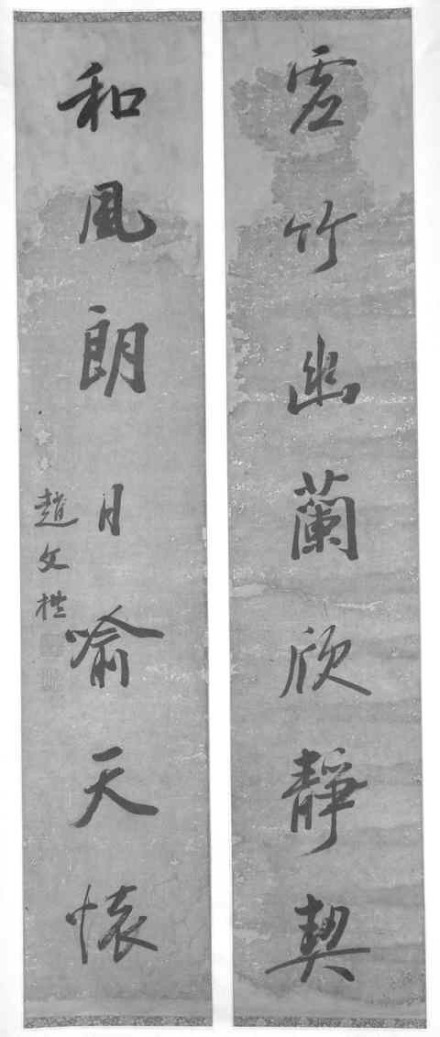 虛竹幽蘭欣靜契
和風朗月喻天懷
趙文楷